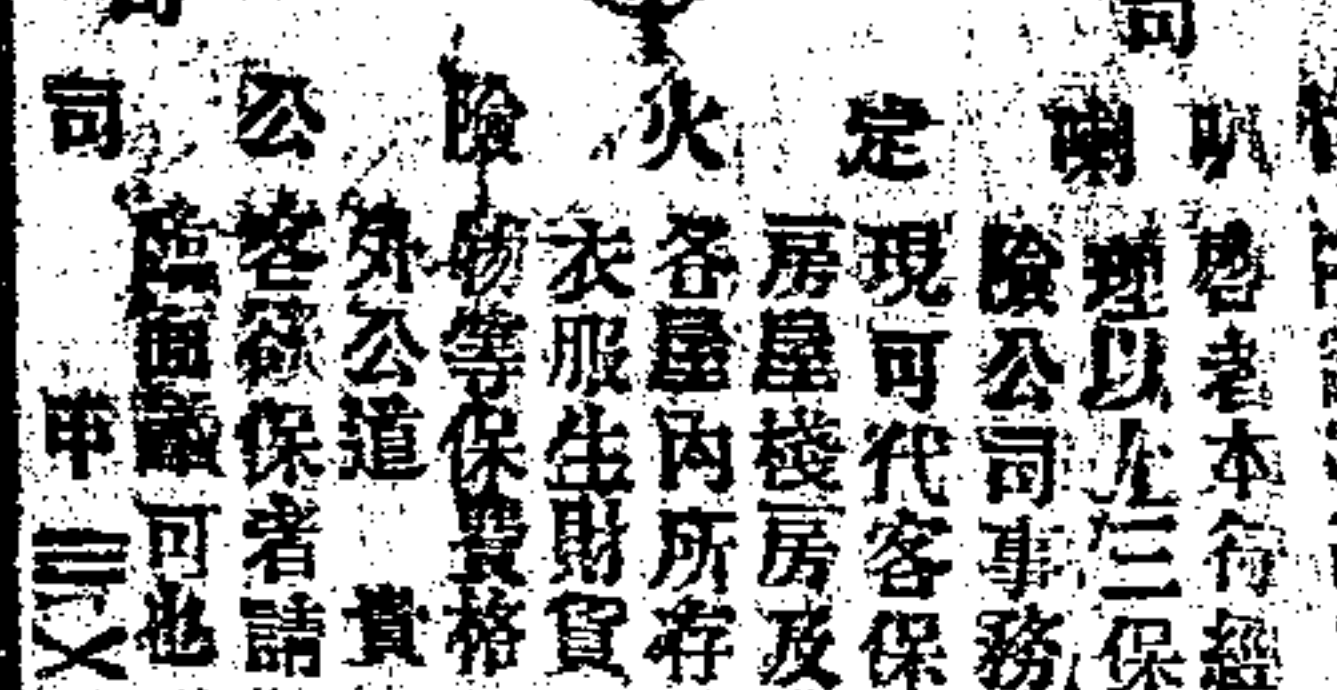 司
叭喇定火險公司
啓者本行經
理以左三保
險公司事務
現可代客保
房屋棧房及
各屋內所存
衣服生財貨
物等保費格
外公道 貴
客欲保者請
臨面議可也
申 三〤